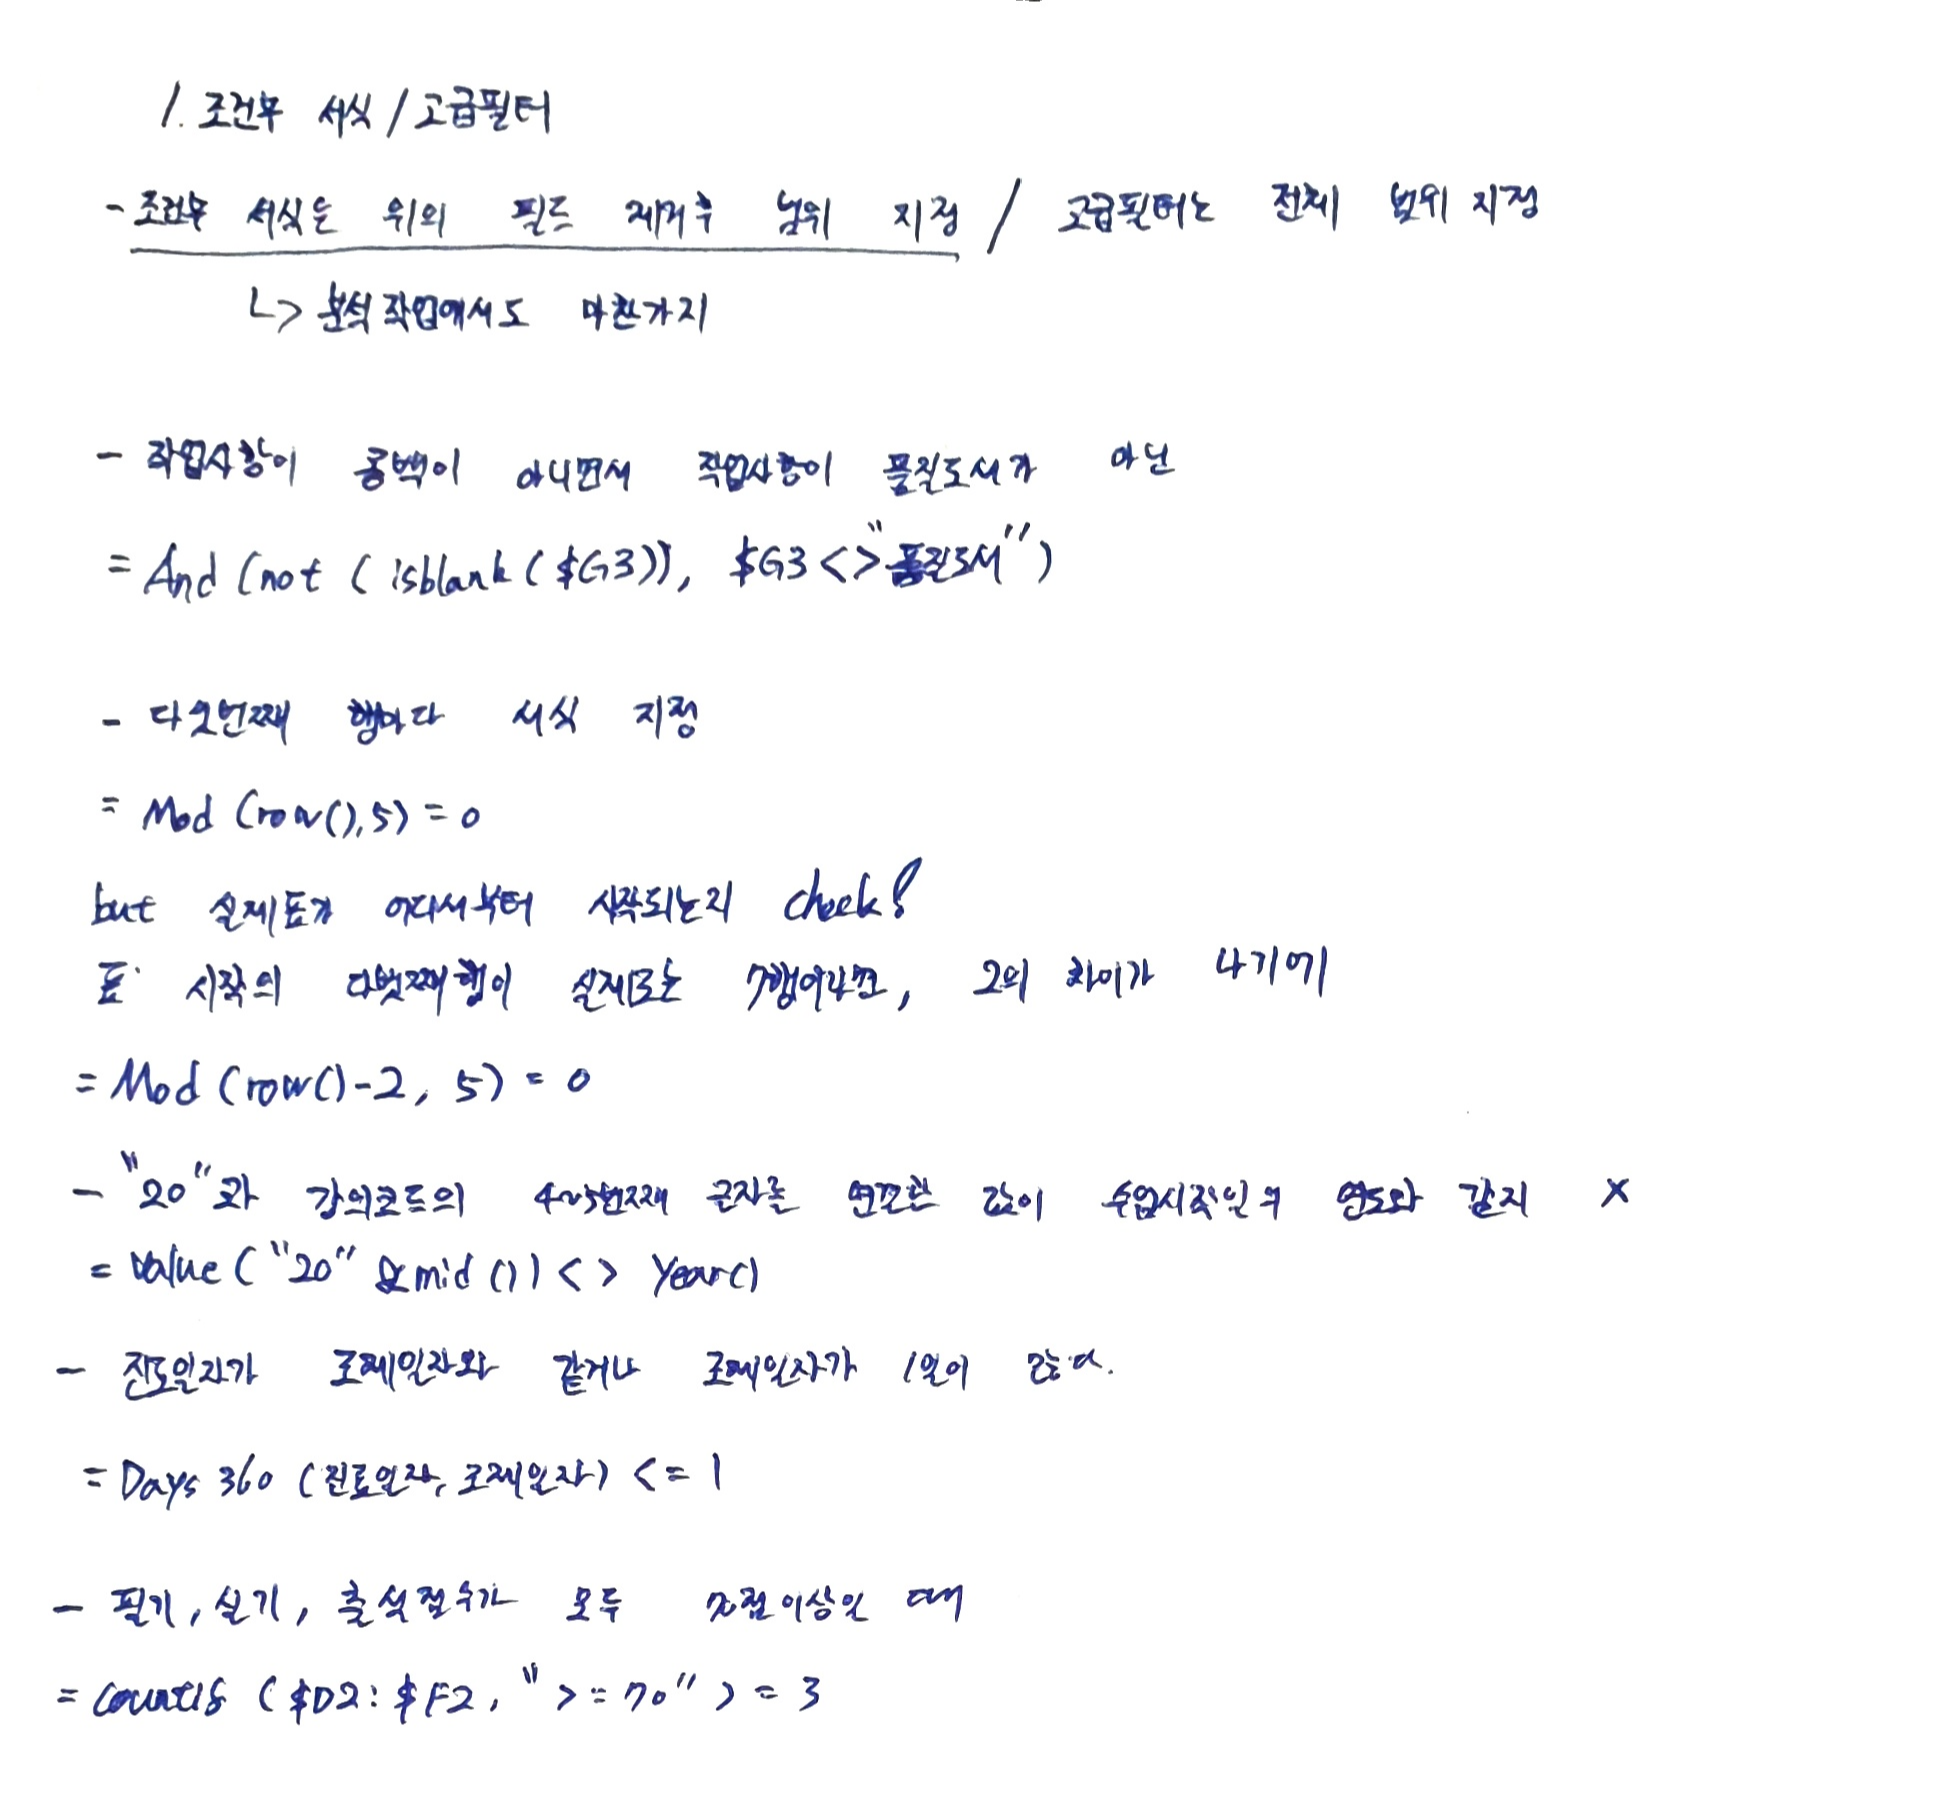 1. 조건부 서식 / 고급필터
- 조건부 서식은 위의 필드 제거후 범위 지정 / 고급필터는 전체 범위 지정
↳ 분석작업에서도 마찬가지
- 작업사항이 공백이 아니면서 작업사항이 품절도서가 아닌
= And (not ( isblank ( $G3)), $G3 <> "품절도서")
- 다섯번째 행마다 서식 지정
= Mod (row(),5) = 0
but 실제표가 어디서부터 시작되는지 check!
표 시작의 다섯째행이 실제로는 7행이라면, 2의 차이가 나기에
= Mod (row()-2, 5) = 0
- "20"와 강의코드의 4~5번째 글자를 연결한 값이 수업시작일의 연도와 같지 X
= Value ( "20" & mid ()) <> Year()
- 진료일자가 조제일자와 같거나 조제일자가 1일이 많다.
= Days 360 (진료일자, 조제일자) <= 1
- 필기, 실기, 출석점수가 모두 70점이상일 때
= countif ( $D2: $F2, ">=70" ) = 3